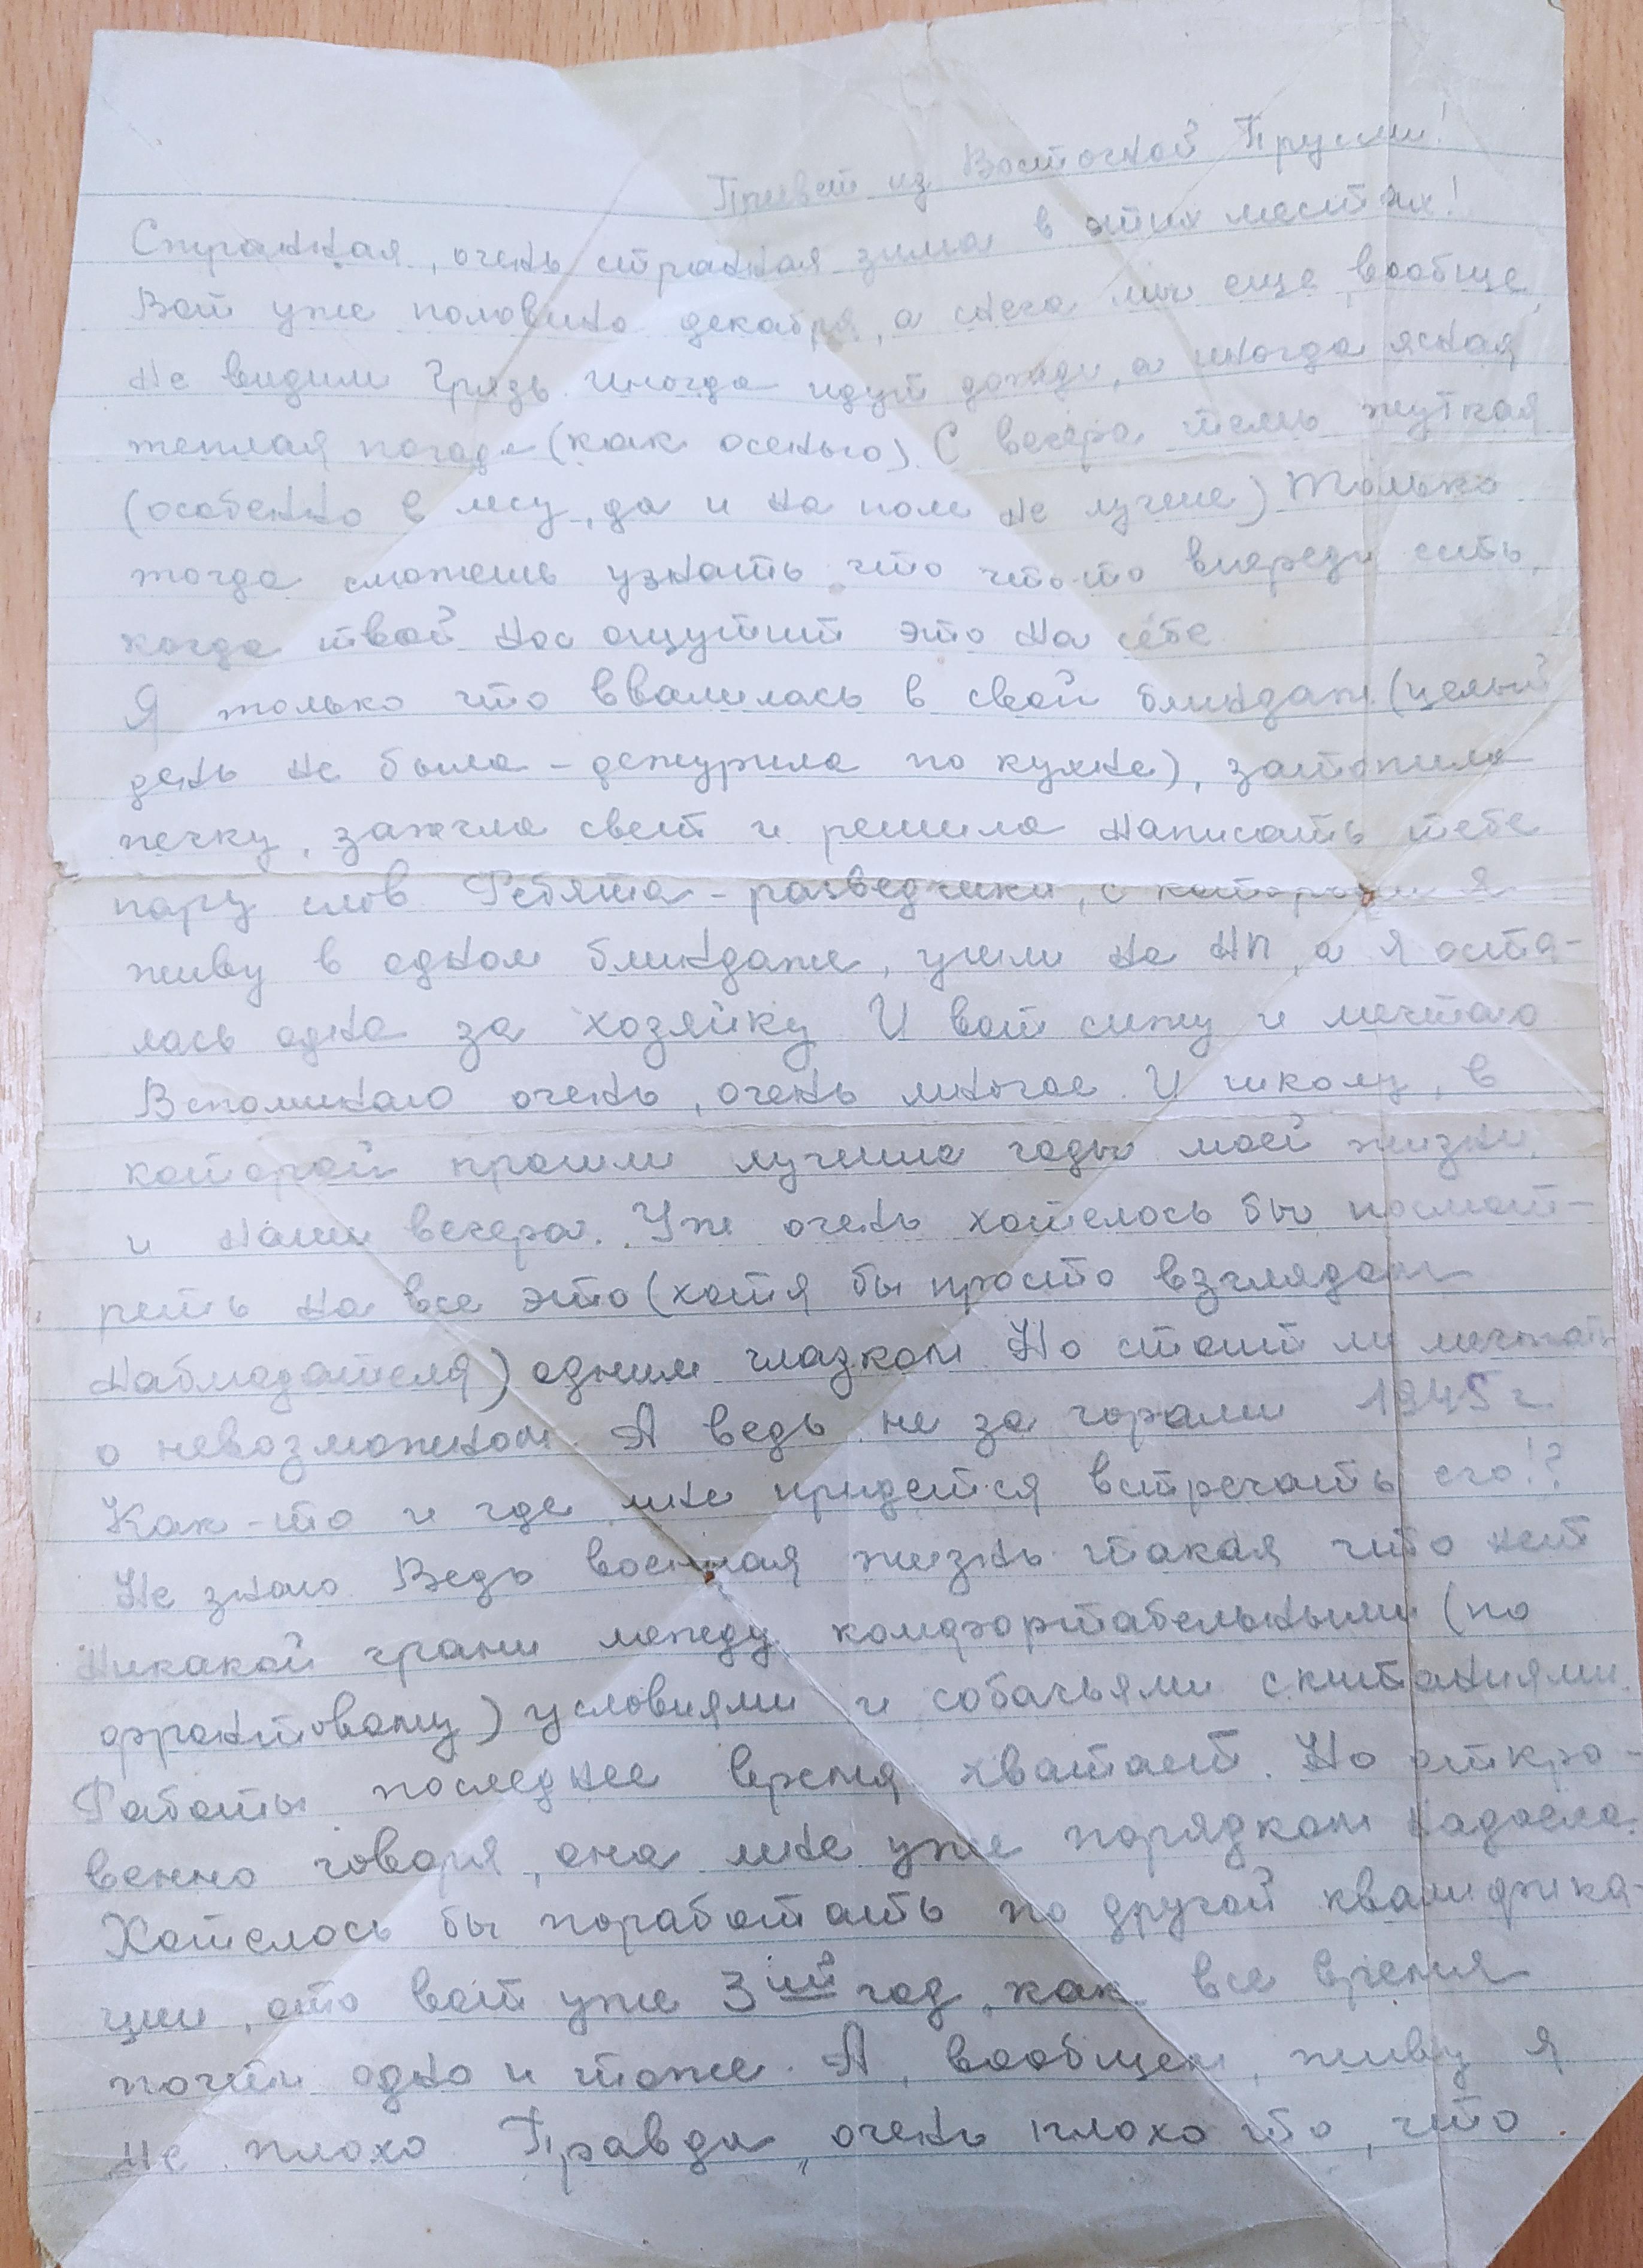 Привет из Восточной Пруссии!
Странная, очень странная зима в этих местах!
Вот уже половина декабря, а снега мы еще, вообще,
не видим Грязь. Иногда идут дожди, а иногда ясная
теплая погода (как осенью). С вечера темь жуткая
(особенно в лесу, да и на поле не лучше) Только
тогда сможешь узнать, что что-то впереди есть,
когда твой нос ощутит это на себе
Я только что ввалилась в свой блиндаж (целый
день не была - дежурила по кухне), затопила
печку, зажгла свет и решила написать тебе
пару слов. Ребята - разведчики, с которыми я
живу в одном блиндаже, ушли на НП, а я оста-
лась одна за хозяйку. И вот сижу и мечтаю
Вспоминаю очень, очень многое. И школу, в
которой прошли лучшие годы моей жизни,
и наши вечера. Уж очень хотелось бы посмот-
реть на все это (хотя бы просто взглядом
наблюдателя) одним глазком. Но стоит ли мечтать
о невозможном. А ведь не за горами 1945 г.
Как-то и где мне придется встречать его!?
Не знаю. Ведь военная жизнь такая что нет
никакой грани между комфортабельными (по
фронтовому) условиями и собачьями скитаниями.
Работы последнее время хватает. Но откро-
венно говоря, она мне уже порядком надоела.
Хотелось бы поработать по другой квалифика-
ции, ато вот уже 3ий год, как все время
почти одно и тоже. А, вообщем, живу я
не плохо Правда, очень плохо то, что